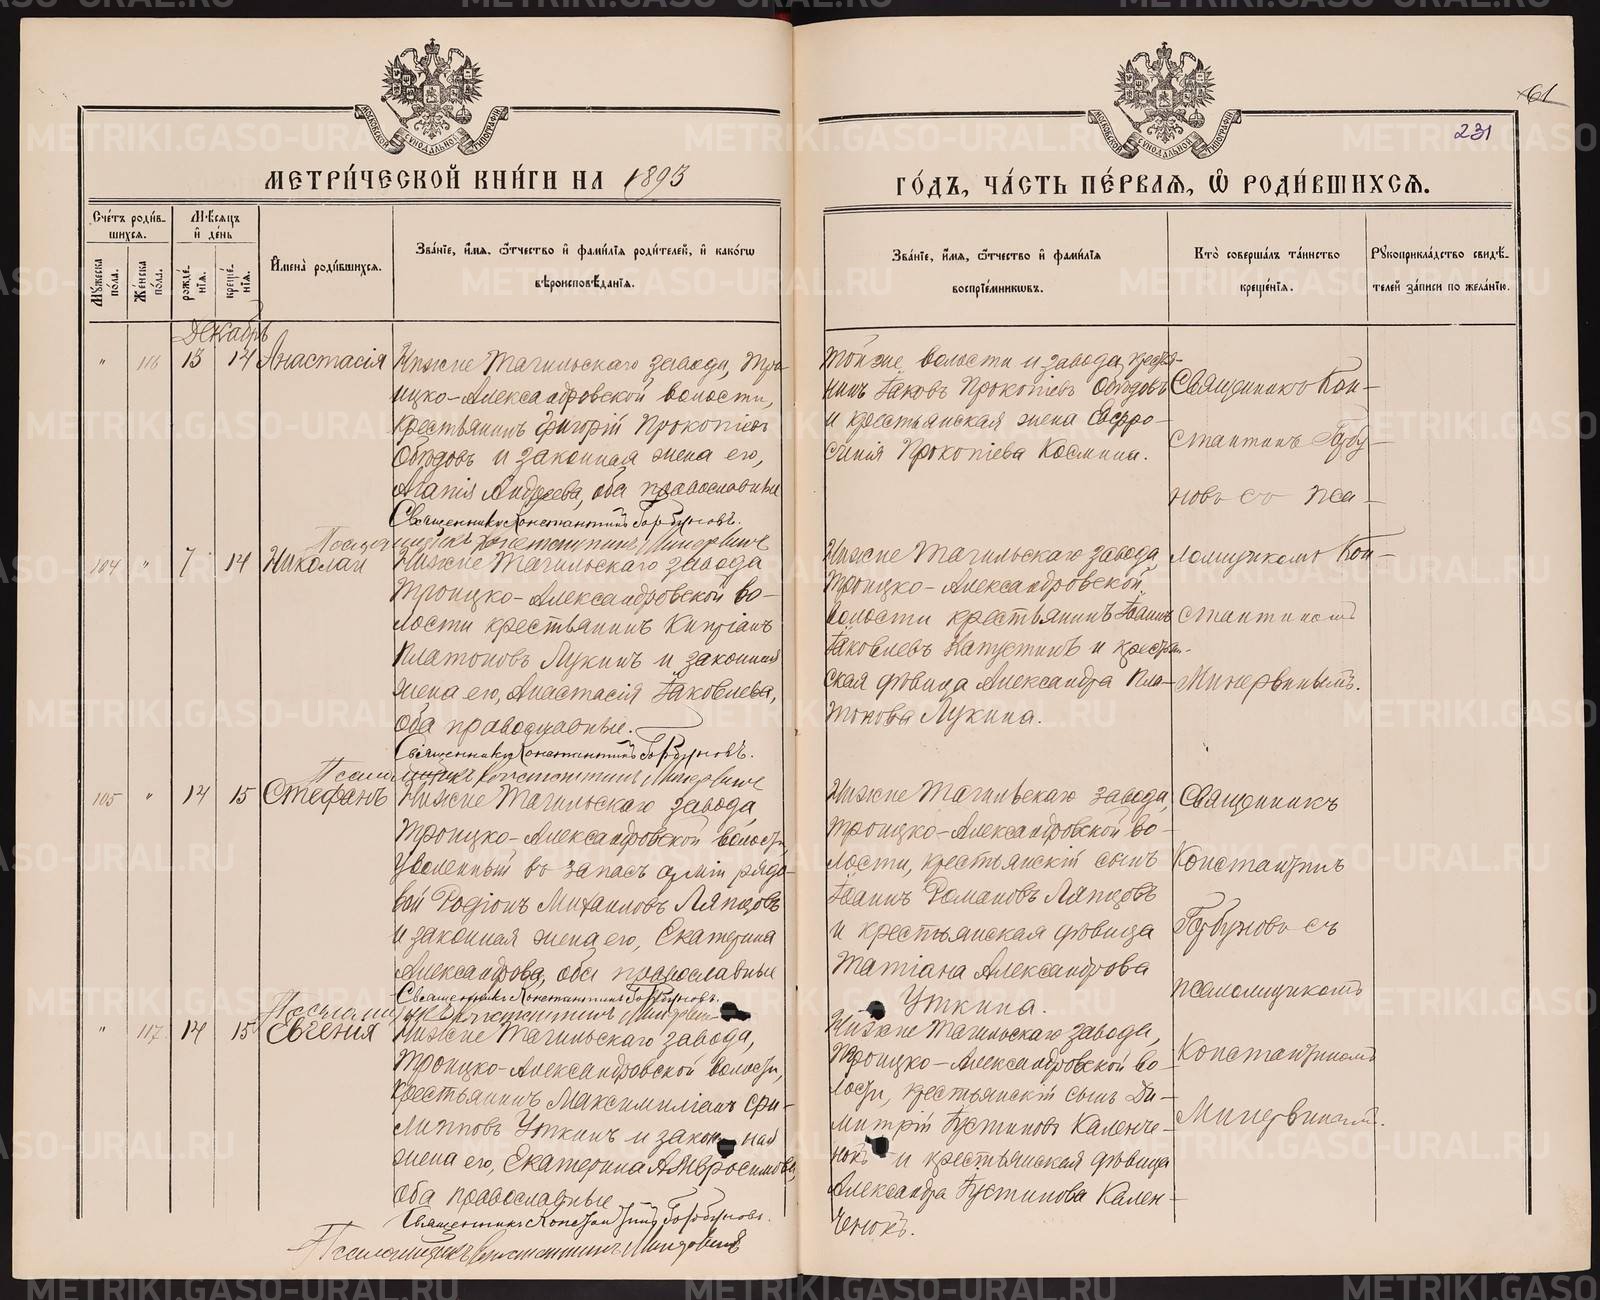 METRIKI.GASO-URAL.RU
61
231
МОСКОВСКОЙ СѴНОДАЛЬНОЙ ТИПОГРАФІИ
МЕТРИ́ЧЕСКОЙ КНИ́ГИ НА 1893
ГО́ДЪ, ЧА́СТЬ ПЕ́РВАѦ, Ѡ РОДИ́ВШИХСѦ.
Сче́тъ роди́в-
шихсѧ.
Му́жеска по́ла.
Же́нска по́ла.
Мѣ́сяцъ
и҆ де́нь
рожде́-
нїѧ.
креще́-
нїѧ.
И҆мена̀ роди́вшихсѧ.
Зва́нїе, и҆́мѧ, ѻ҆́тчество и҆ фами́лїѧ роди́телей, и҆ како́гѡ
вѣроисповѣ́данїѧ.
Зва́нїе, и҆́мѧ, ѻ҆́тчество и҆ фами́лїѧ
воспрїе́мникѡвъ.
Кто̀ соверша́лъ та́инство
креще́нїѧ.
Рꙋкоприкла́дство свидѣ́-
телей за́писи по жела́нїю.
Декабрь
" 116 13 14 Анастасія
Нижне Тагильскаго завода, Тро-
ицко-Александровской волости,
крестьянинъ Григорій Прокопіевъ
Обѣдовъ и законная жена его,
Агапія Андреева, оба православные
Священникъ Константинъ Горбуновъ.
Псаломщикъ Константинъ Минервинъ
той же волости и завода, крестья-
нинъ Іаковъ Прокопіевъ Обѣдовъ
и крестьянская жена Евфро-
синія Прокопіева Космина.
Священникъ Кон-
стантинъ Горбу-
новъ съ пса-
ломщикомъ Кон-
стантиномъ
Минервинымъ.
104 " 7 14 Николай
Нижне Тагильскаго завода
Троицко-Александровской во-
лости крестьянинъ Кипріанъ
Платоновъ Лукинъ и законная
жена его, Анастасія Іаковлева,
оба православные.
Священникъ Константинъ Горбуновъ.
Псаломщикъ Константинъ Минервинъ
Нижне Тагильскаго завода
Троицко-Александровской
волости крестьянинъ Іоаннъ
Іаковлевъ Капустинъ и крестьян-
ская дѣвица Александра Пла-
тонова Лукина.
105 " 14 15 Стефанъ
Нижне Тагильскаго завода,
Троицко-Александровской волости,
уволенный въ запасъ арміи рядо-
вой Родіонъ Михаиловъ Ляпцовъ
и законная жена его, Екатерина
Александрова, оба православные
Священникъ Константинъ Горбуновъ.
Псаломщикъ Константинъ Минервинъ
Нижне Тагильскаго завода,
Троицко-Александровской во-
лости, крестьянскій сынъ
Іоаннъ Романовъ Ляпцовъ
и крестьянская дѣвица
Татіана Александрова
Уткина.
Священникъ
Константинъ
Горбуновъ съ
псаломщикомъ
Константиномъ
Минервинымъ.
" 117 14 15 Евгенія
Нижне Тагильскаго завода,
Троицко-Александровской волости,
крестьянинъ Максимиліанъ Фи-
липповъ Уткинъ и законная
жена его, Екатерина Амвросимова,
оба православные
Священникъ Константинъ Горбуновъ.
Псаломщикъ Константинъ Минервинъ
Нижне Тагильскаго завода,
Троицко-Александровской во-
лости, крестьянскій сынъ Ди-
митрій Іустиновъ Каленче-
нокъ и крестьянская дѣвица
Александра Іустинова Кален-
ченокъ.